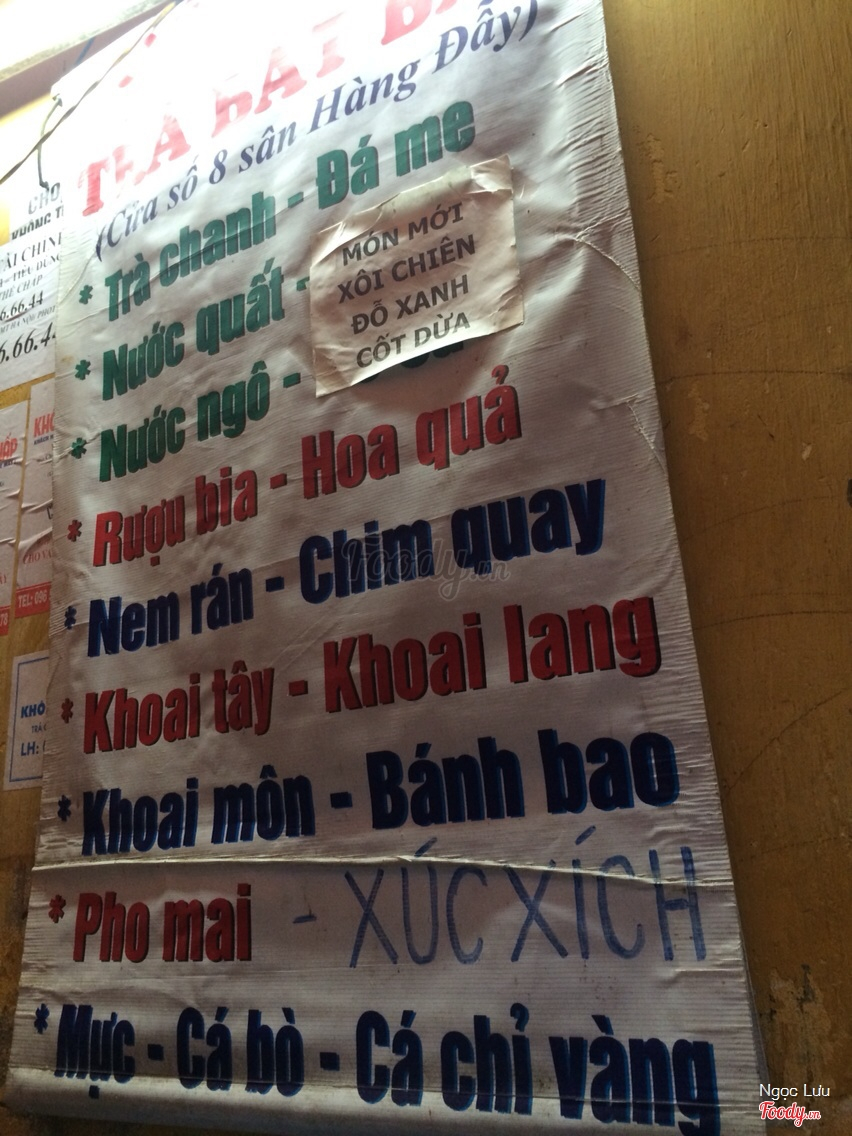 TRÀ BÁT B
(Cửa số 8 sân Hàng Đẫy)
* Trà chanh - Đá me
* Nước quất -
* Nước ngô -
MÓN MỚI
XÔI CHIÊN
ĐỖ XANH
CỐT DỪA
* Rượu bia - Hoa quả
* Nem rán - Chim quay
* Khoai tây - Khoai lang
* Khoai môn - Bánh bao
* Pho mai - XÚC XÍCH
* Mực - Cá bò - Cá chỉ vàng
KHÔNG
ÀI CHÍN
6.66.44
6.66.4
TEL: 096
KHÔ
LH:
Foody.vn
Ngọc Lưu
Foody.vn